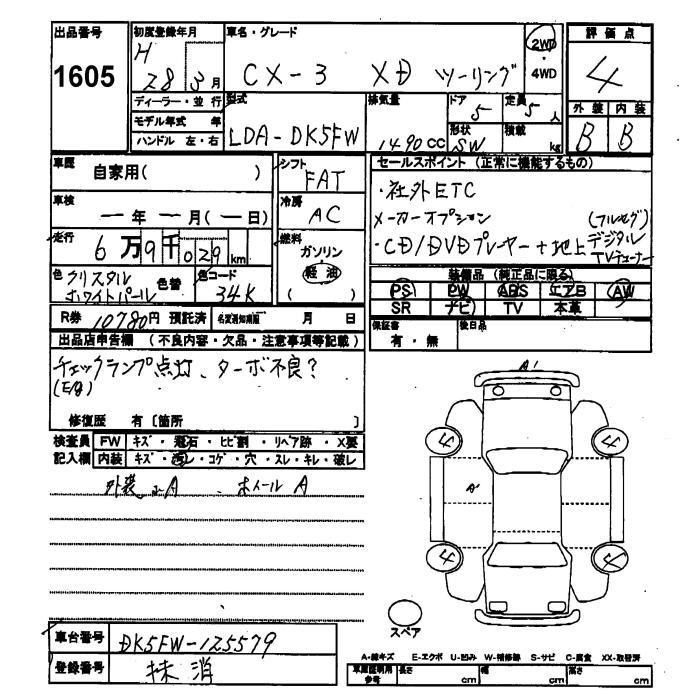 出品番号
1605
初度登録年月
H 28 3月
車名・グレード
CX-3 XD ツーリング
2WD
・
4WD
評価点
4
外装 内装
B B
ディーラー・並行
モデル年式 年
ハンドル 左・右
型式
LDA-DK5FW
排気量
1490cc
ドア
5
定員
5人
形状
SW
積載
kg
車歴
自家用( )
シフト
FAT
車検
ー年ー月(ー日)
冷房
AC
走行
6万9千029km
燃料
ガソリン
軽油
( )
色
クリスタル
ホワイトパール
色替
色コード
34K
セールスポイント(正常に機能するもの)
・社外ETC
メーカーオプション (フルセグ)
・CD/DVDプレーヤー+地上デジタル
TVチューナー
装備品(純正品に限る)
PS PW ABS エアB AW
SR ナビ TV 本革
R券 10780円 預託済 名変通知期限 月 日
保証書
有・無
後日品
出品店申告欄 (不良内容・欠品・注意事項等記載)
チェックランプ点灯、ターボ不良?
(E/g)
修復歴 有〔箇所 〕
検査員 FW キズ・飛石・ヒビ割・リペア跡・X要
記入欄 内装 キズ・汚レ・コゲ・穴・スレ・キレ・破レ
外装 A ホイールA
A'
4
4
A'
4
4
スペア
車台番号
DK5FW-125579
登録番号
抹消
A-線キズ E-エクボ U-凹み W-補修跡 S-サビ C-腐食 XX-取替済
車庫証明用
参考
長さ cm
幅 cm
高さ cm